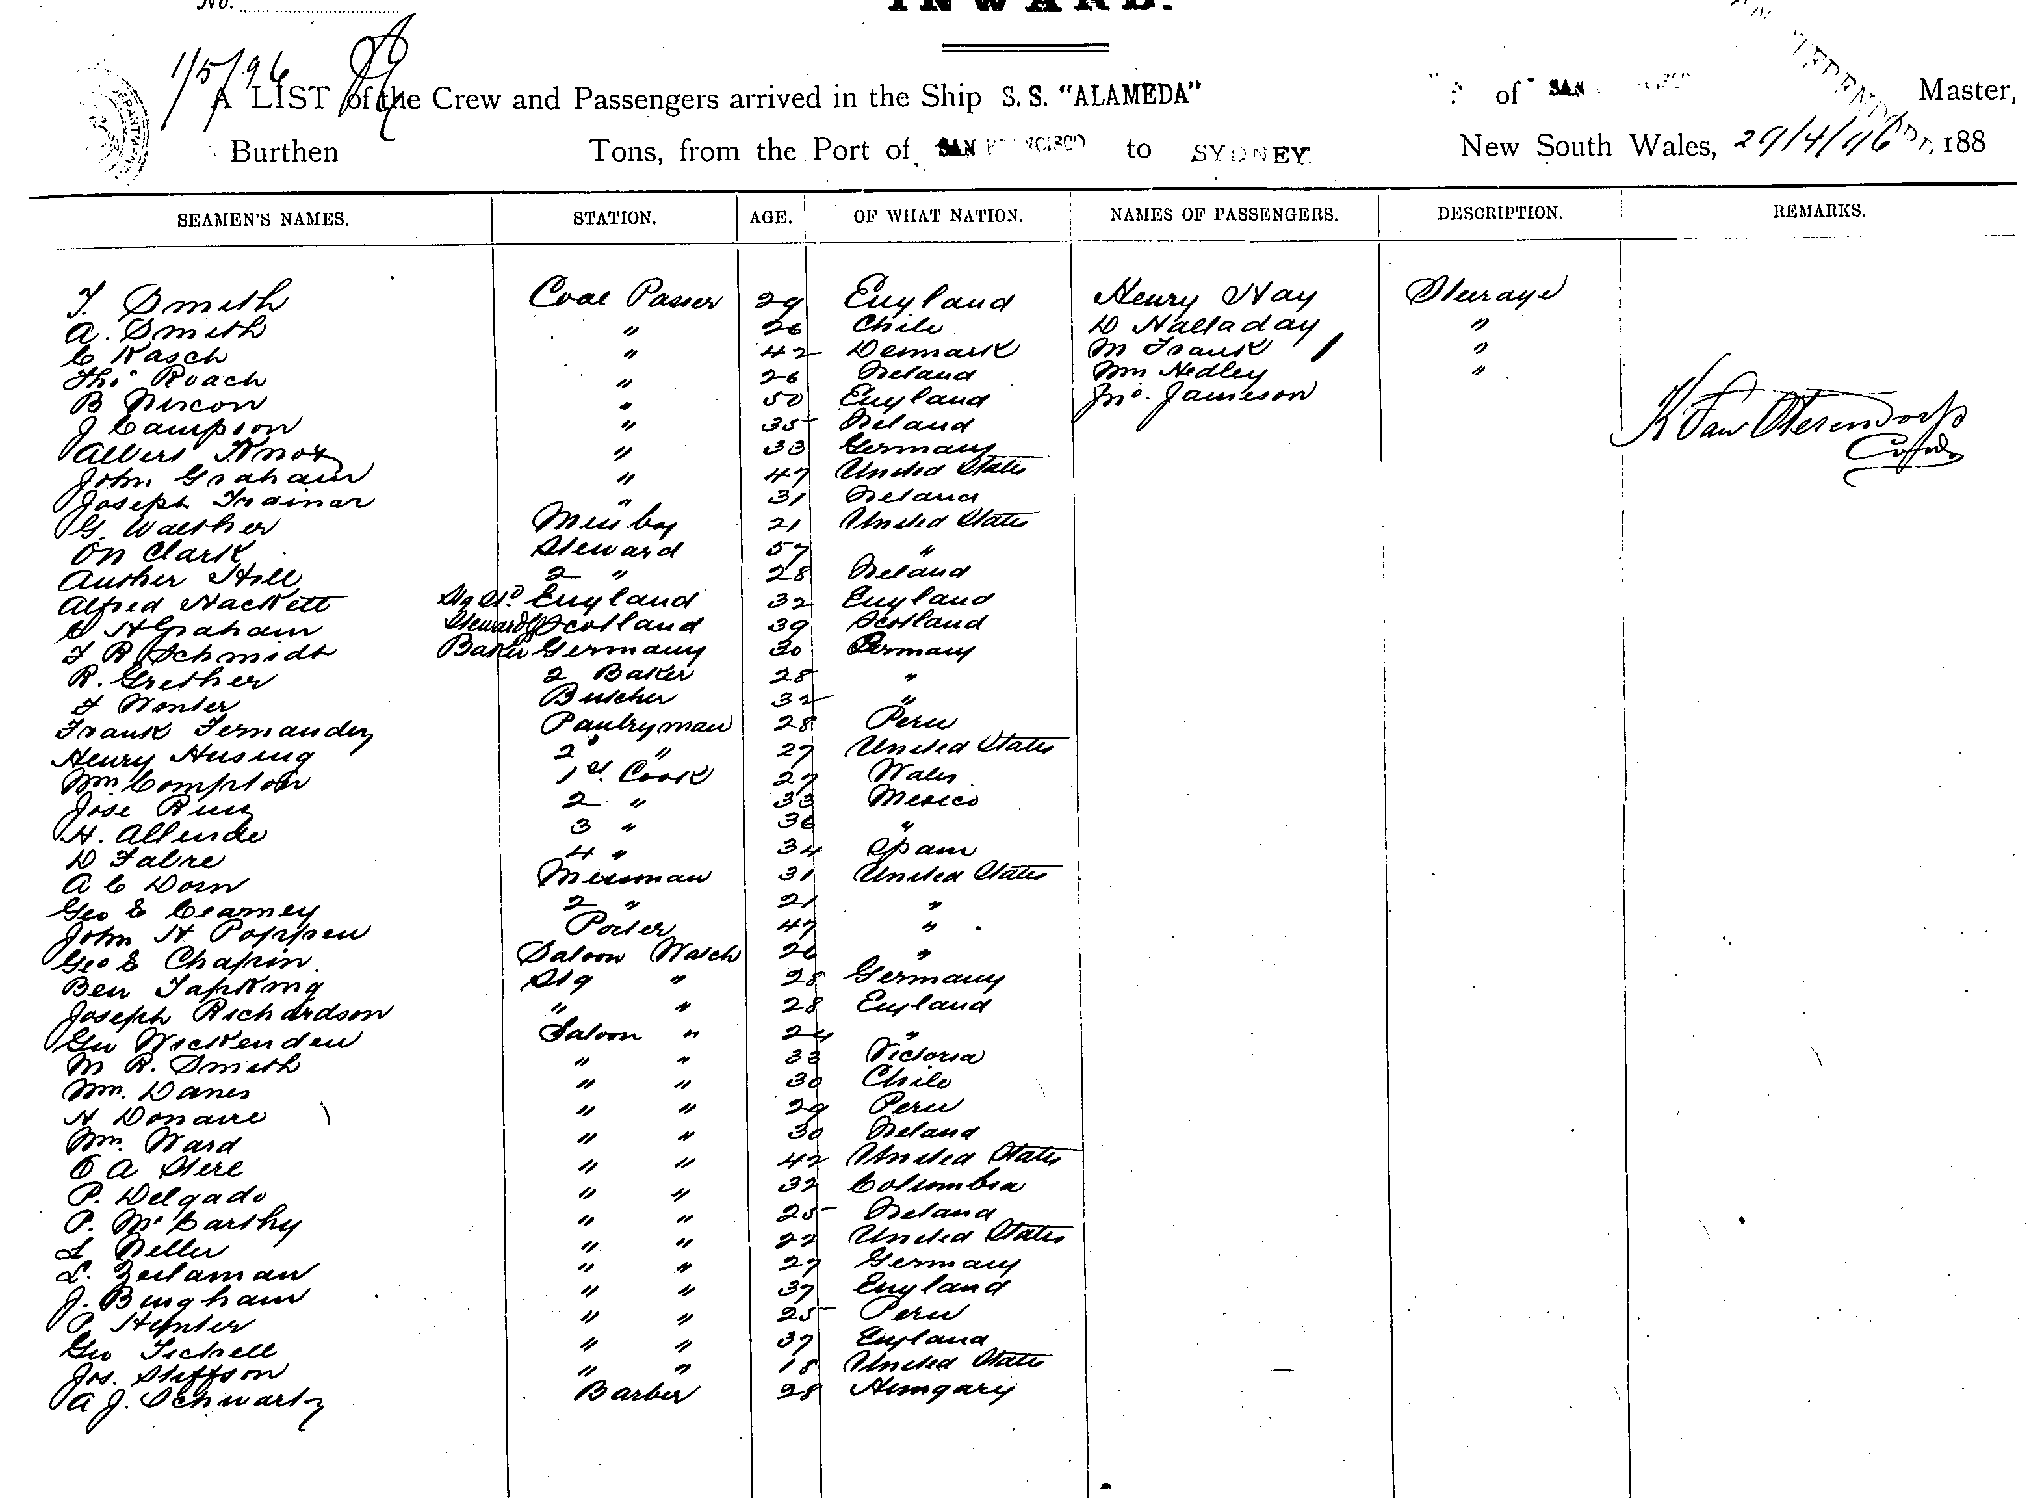 No.
INWARD.
1/5/96
A LIST of the Crew and Passengers arrived in the Ship S. S. "ALAMEDA" of SAN Master,
Burthen Tons, from the Port of SAN FRANCISCO to SYDNEY New South Wales, 29/4/96 188
SEAMEN'S NAMES. STATION. AGE. OF WHAT NATION. NAMES OF PASSENGERS. DESCRIPTION. REMARKS.
T. Smith Coal Passer 29 England Henry Hay Steerage
A. Smith " 26 Chile D Halladay "
C Kasch " 42 Denmark M Frank "
Thos Roach " 26 Ireland Wm Hedley "
B Nixcon " 50 England Jno. Jamieson
J Campson " 35 Ireland
Albert Knox " 33 Germany
John Graham " 47 United States
Joseph Trainar " 31 Ireland
G. Walther Messboy 21 United States
Clark Steward 57 "
Hill 2 " 28 Ireland
Alfred Hackett England 32 England
C H Graham Steward Scotland 39 Scotland
F R Schmidt Baker Germany 30 Germany
R. Grether 2 Baker 28 "
F Wonter Butcher 32 "
Frank Fernandez Pantryman 28 Peru
Henry Husing 2d " 27 United States
Wm Compton 1st Cook 27 Wales
Jose Ruiz 2 " 33 Mexico
H. Allende 3 " 36 "
D Fabre 4 " 34 Spain
A C Dorn Messman 31 United States
Geo E Cearney 2 " 21 "
John H Poppen Porter 47 "
Geo E Chapin. Saloon Watch 26 "
Ben Tapking Stg " 28 Germany
Joseph Richardson " " 28 England
Geo Wickenden Saloon " 24 "
M R. Smith " " 33 Victoria
Wm. Danes " " 30 Chile
H Donaire " " 29 Peru
Wm. Ward " " 30 Ireland
O A Stere " " 42 United States
P. Delgado " " 32 Columbia
P. McCarthy " " 25 Ireland
L Neller " " 22 United States
L. Zeilaman " " 27 Germany
J. Bingham " " 37 England
P Hunter " " 25 Peru
Geo Tickell " " 37 England
Jos. Steffson " " 18 United States
A J. Schwartz Barber 28 Hungary